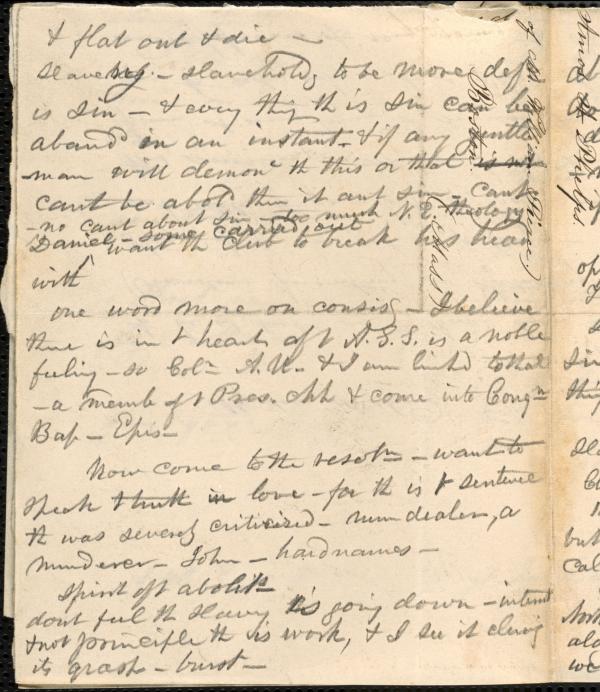 & flat out & die —
slaveholdg to be more def
is sin — & every thing th is sin can be
aband in an instant — & if any gentle
man will demon th this or that is not
cant be abold then it ant sin — cant
— no cant about sin — too much N.E. theology
Daniel — some carried out
want th Club to break his head
with
one word more on consisg — I believe
there is in t heart oft A.S.S. is a noble
feeling — so Coln A.U. & I am linked to that
— a memb oft Pres. chh & come into Congn
Bap — Epis —
Now come to the resoln — want to
speak t truth in love — for th is t sentence
th was severely criticized — man dealer, a
murderer — John — hard names —
spirit oft abolitn
dont feel th slavery is going down — interest
& not principle th is work, & I see it clenchg
its grasp — burst —
Boston
(Mass)
Amos A. Phelps